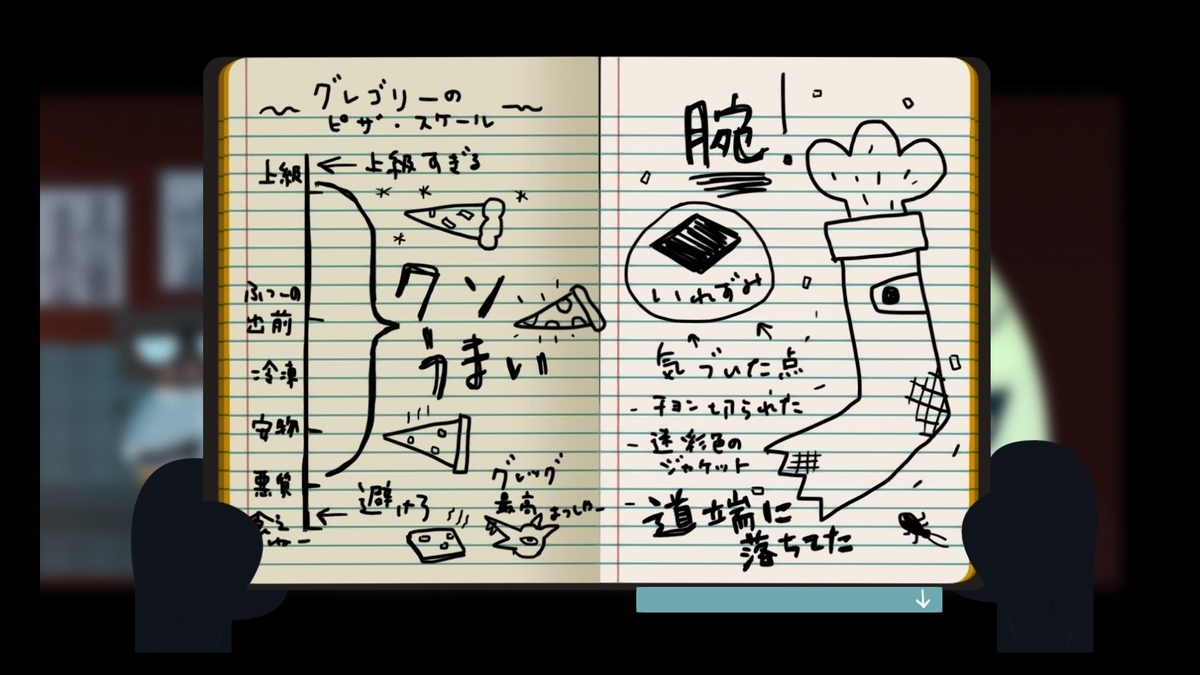 グレゴリーの
ピザ・スケール
上級
上級すぎる
クソ
うまい
ふつーの
出前
冷凍
安物
悪質
避けろ
グレッグ
最高
腕!
いれずみ
気づいた点
- チョン切られた
- 迷彩色の
ジャケット
- 道端に
落ちてた